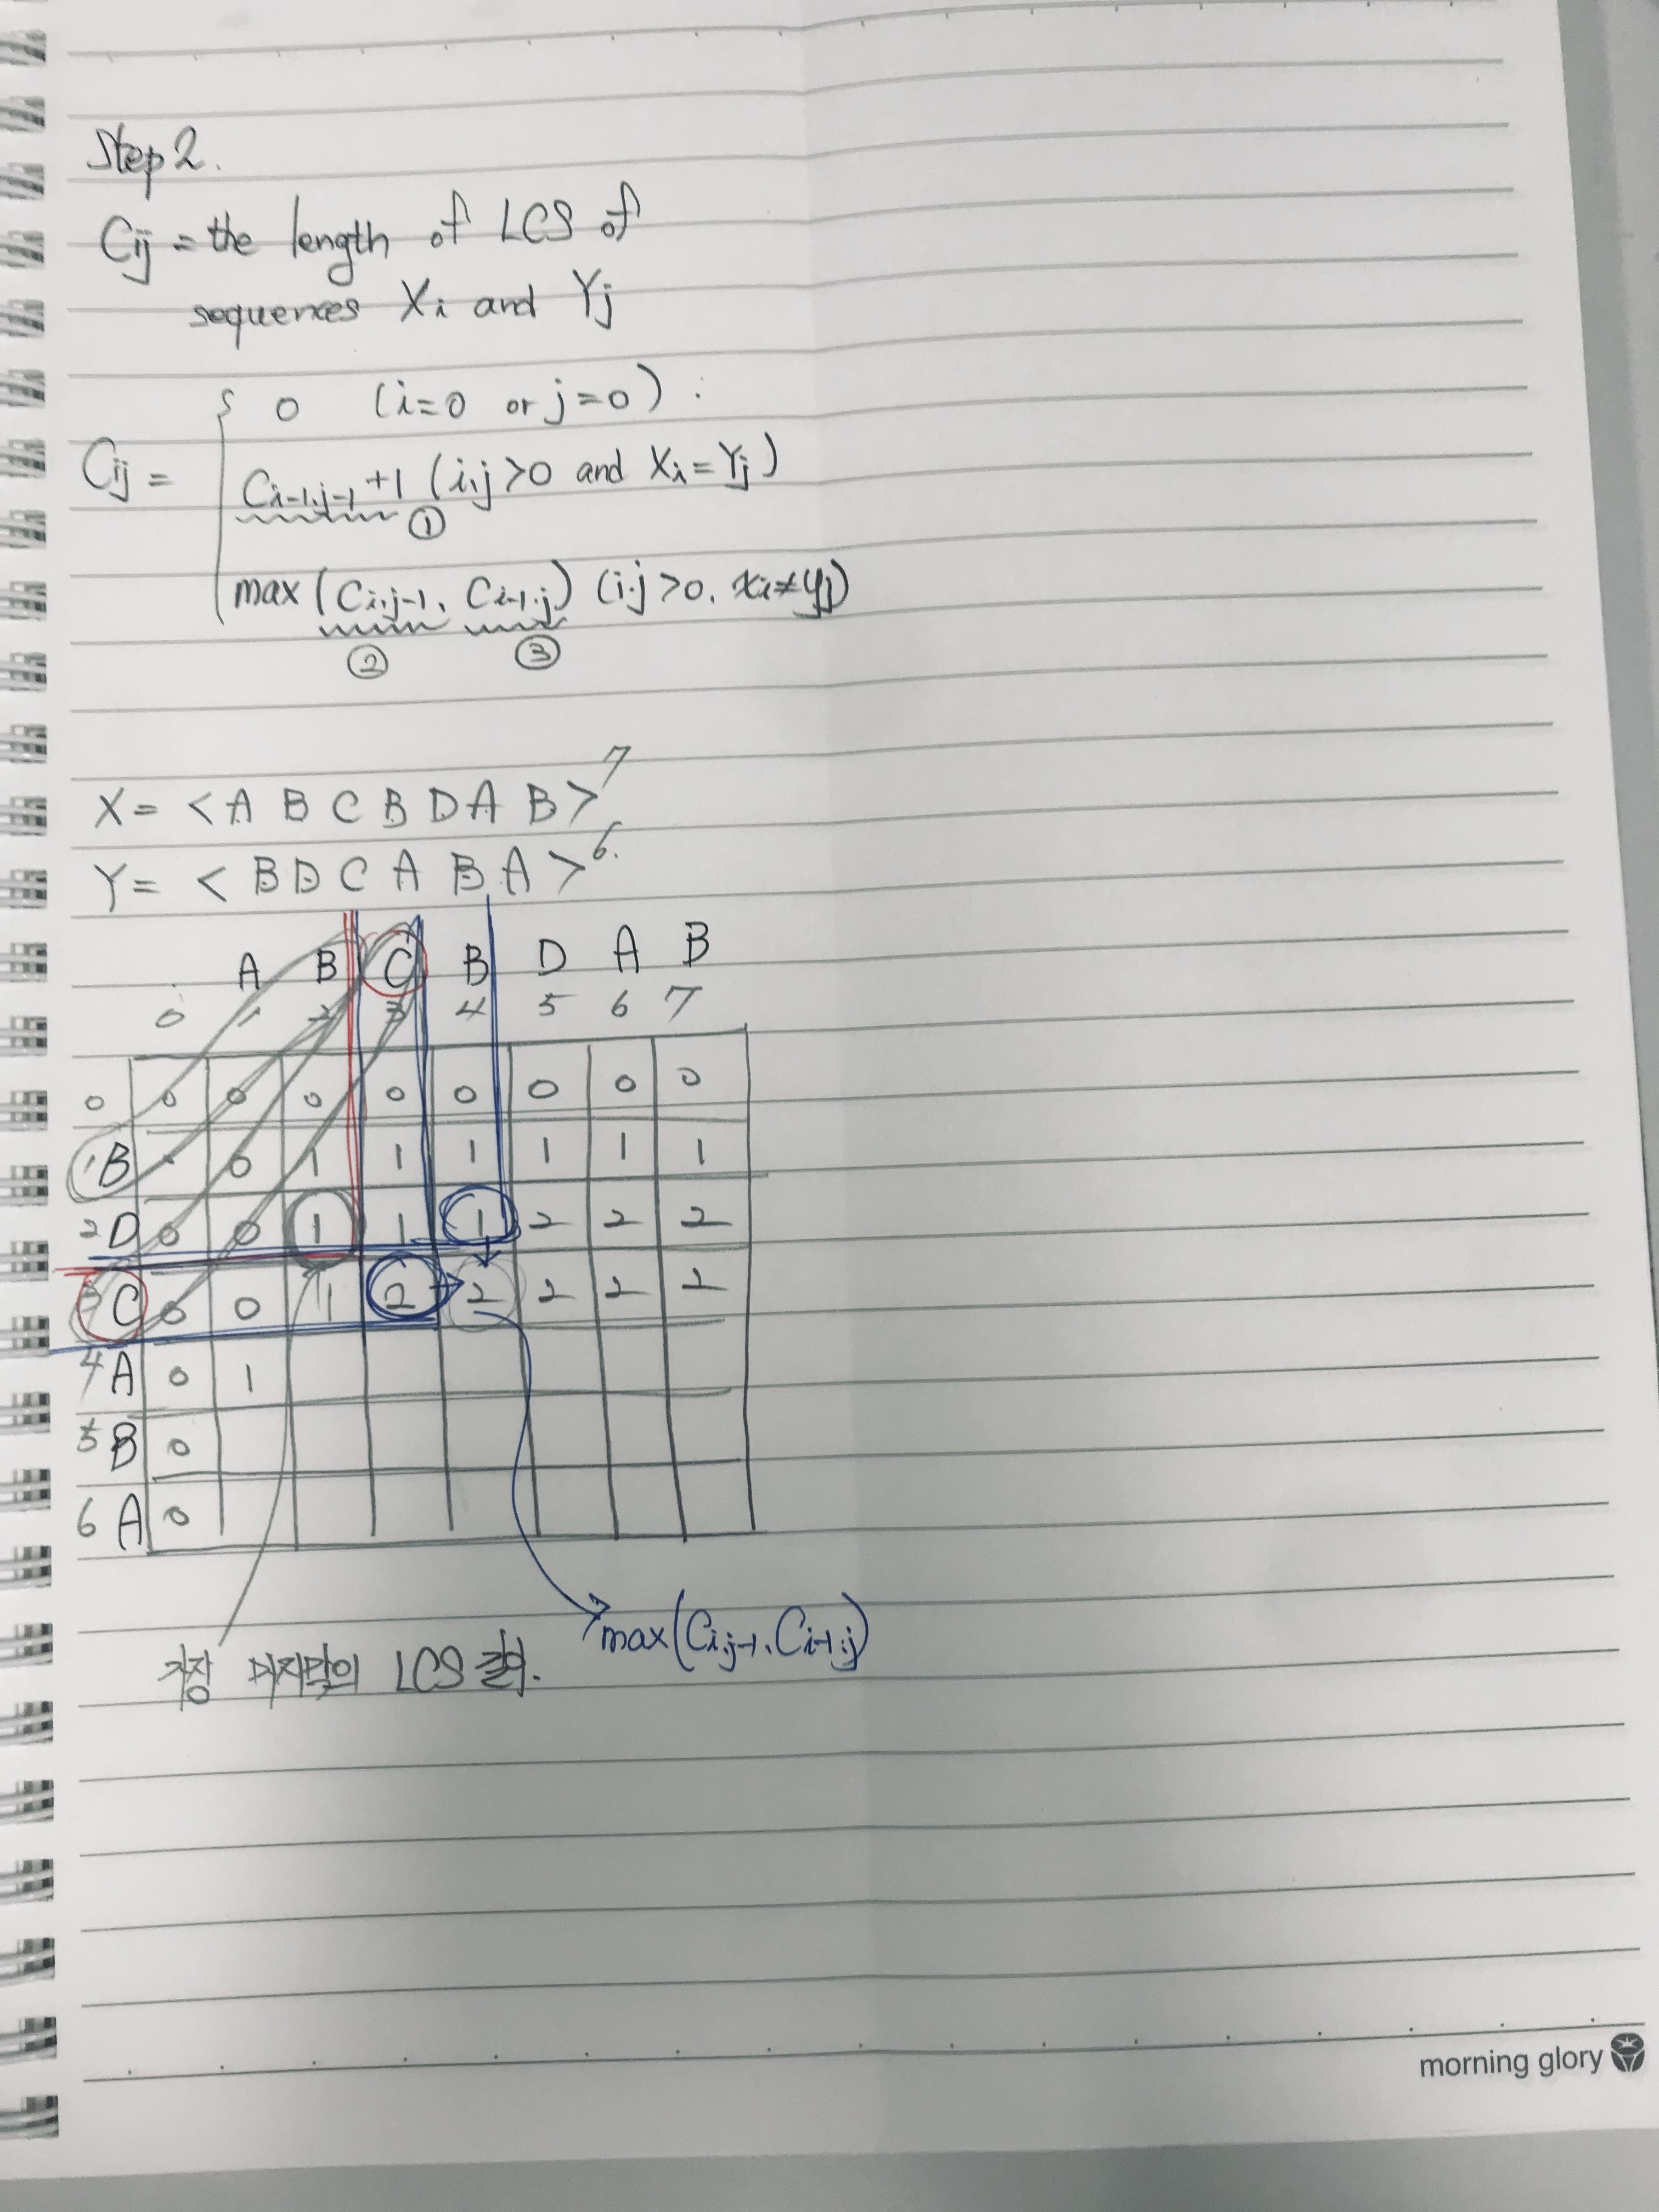 Step 2.
Cij = the length of LCS of
sequences Xi and Yj
0 (i=0 or j=0)
Cij = Ci-1,j-1 +1 (i,j>0 and Xi=Yj)
①
max (Ci,j-1, Ci-1,j) (i,j>0, xi≠yj)
② ③
X = <A B C B D A B> 7
Y = <B D C A B A> 6.
A B C B D A B
0 1 2 3 4 5 6 7
0 0 0 0 0 0 0 0 0
1 B 0 1 1 1 1 1 1
2 D 0 0 1 1 1 2 2 2
3 C 0 0 1 2 2 2 2 2
4 A 0 1
5 B 0
6 A 0
max(Ci,j-1, Ci-1,j)
가장 마지막의 LCS
morning glory